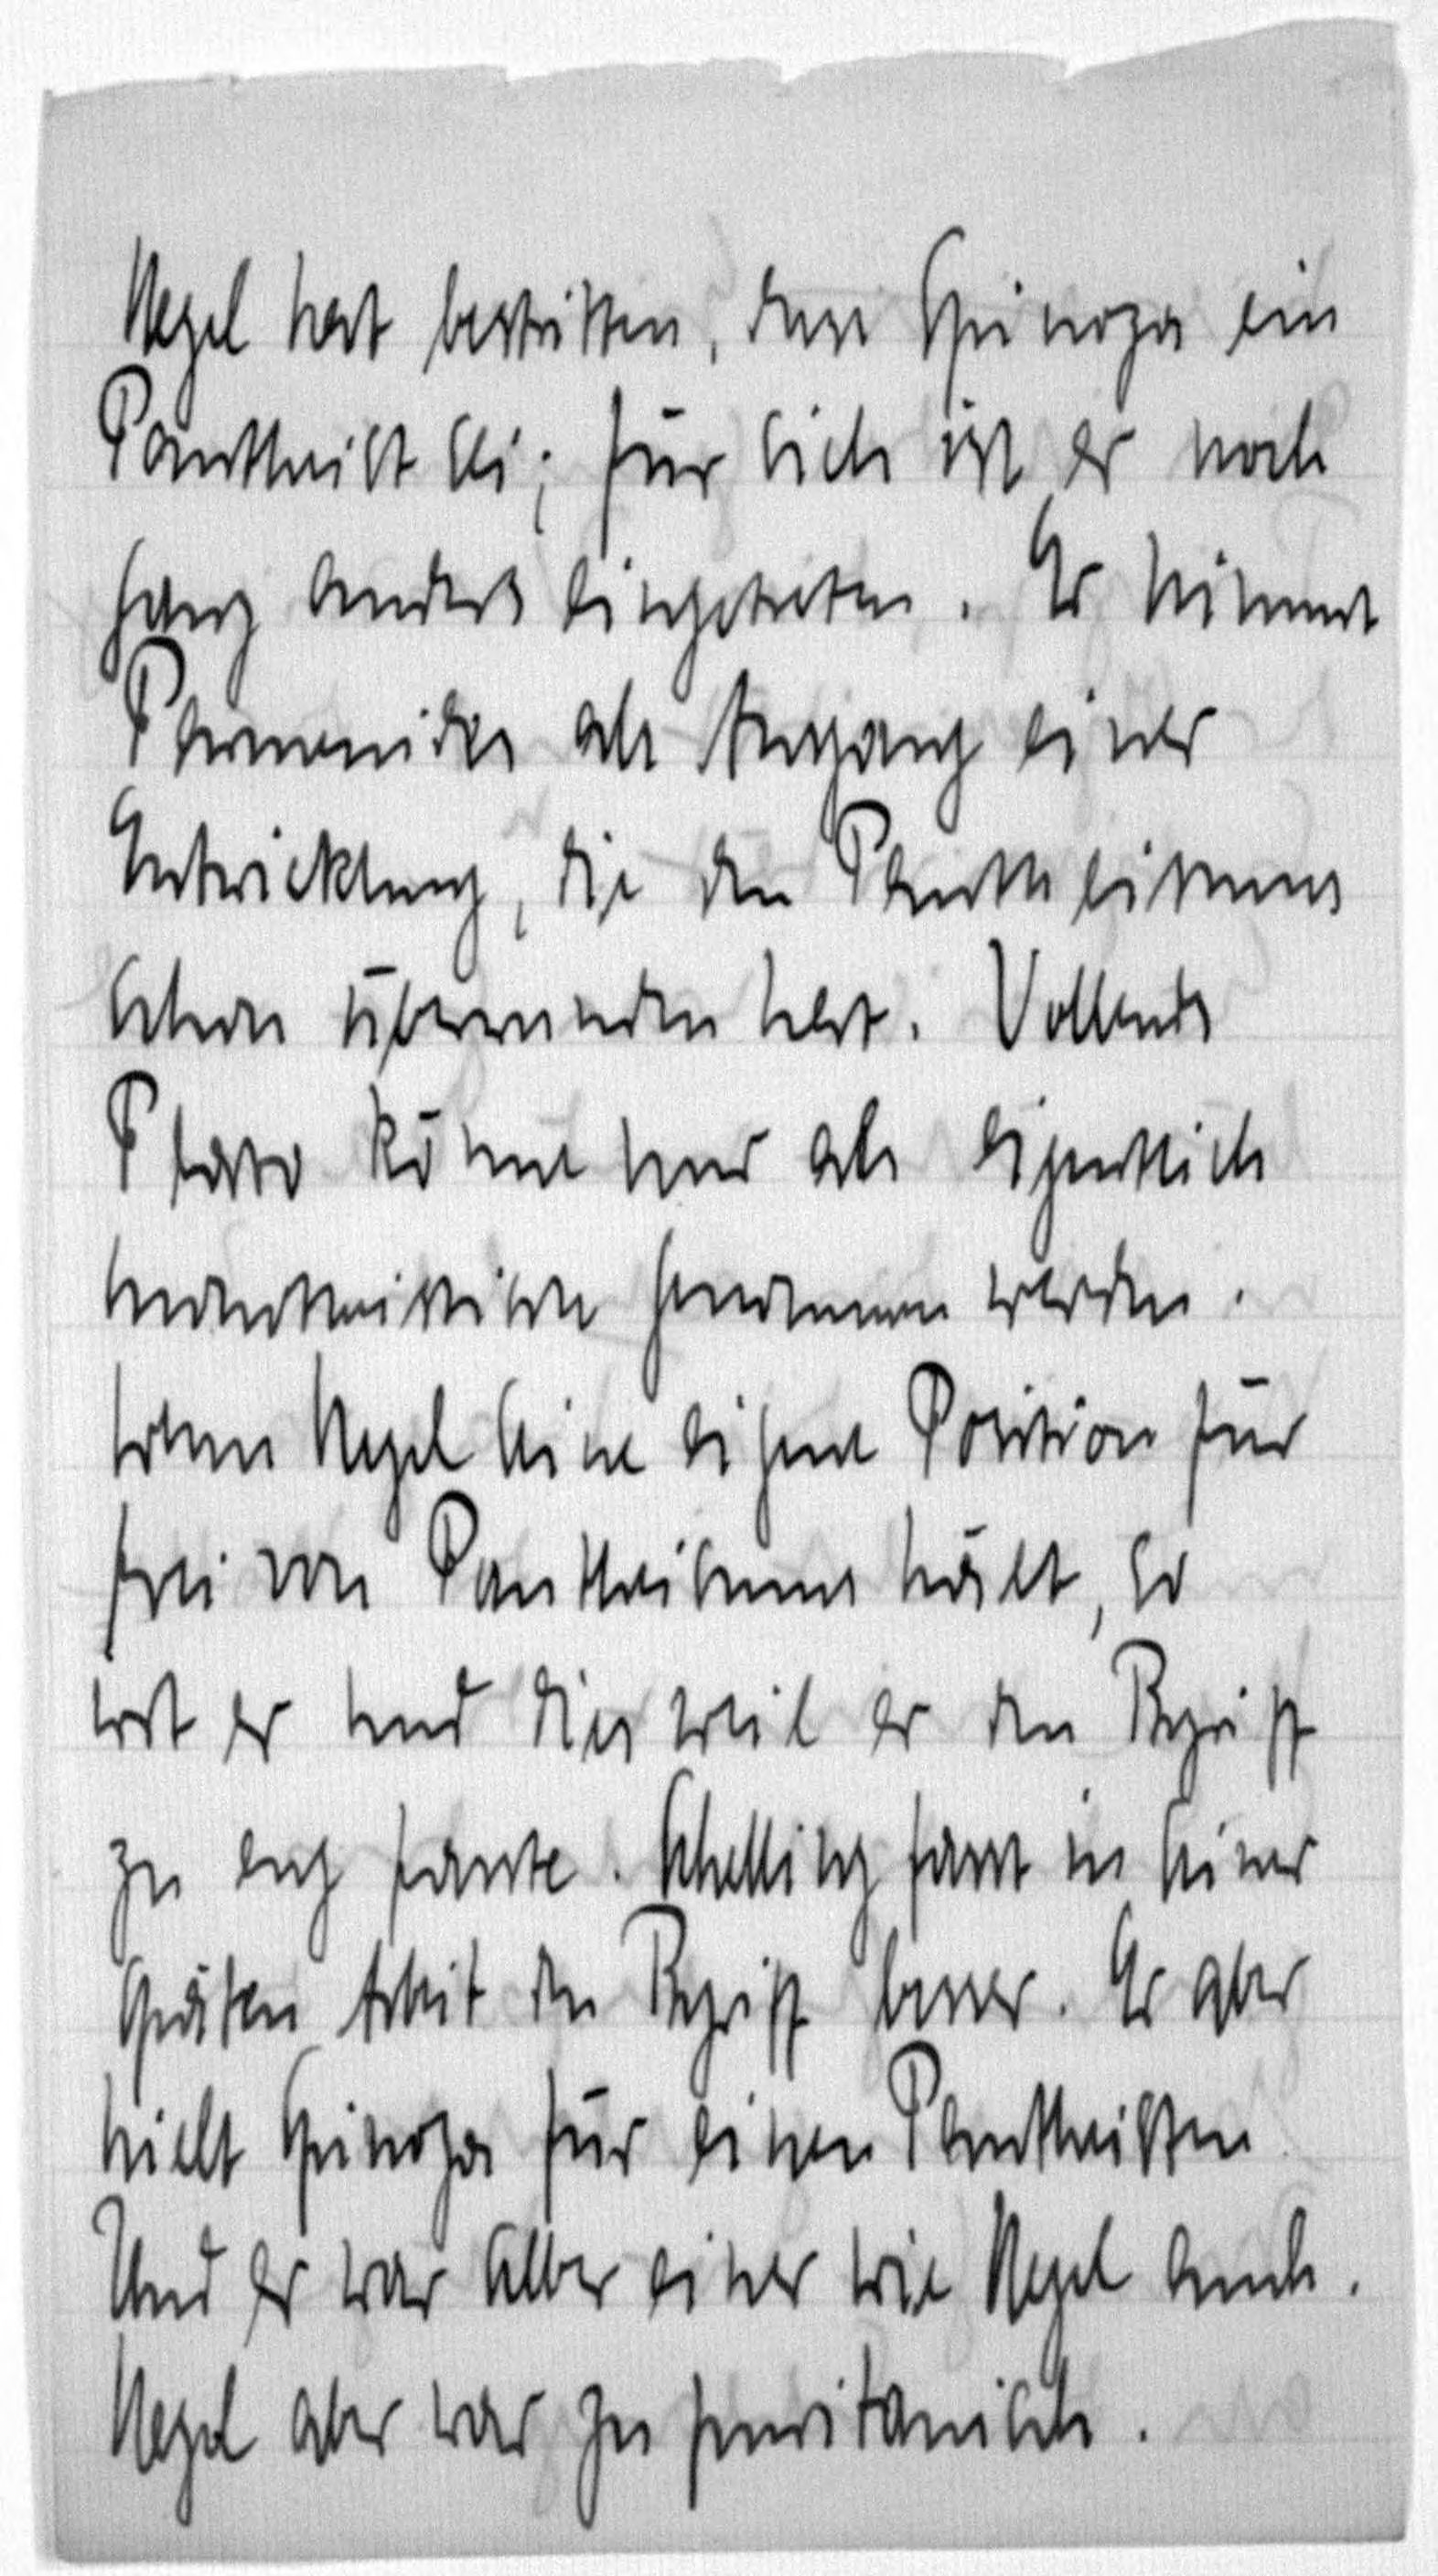 Hegel hat bestritten, dass Spinoza ein
Pantheist sei; für sich ist er noch
ganz anders eingetreten. Er nimmt
Parmenides als Anfang einer
Entwicklung, die den Pantheismus
schon überwunden hat. Vollends
Plato könne nur als eigentlich
genommen werden.
Wenn Hegel seine eigene Position für
frei von Pantheismus hält, so
irrt er und dies weil er den Begriff
zu eng fasste. Schelling fasst in seiner
späten Arbeit den Begriff besser. Er aber
hielt Spinoza für einen Pantheisten
Und er war selber einer wie Hegel auch.
Hegel aber war zu puritanisch.